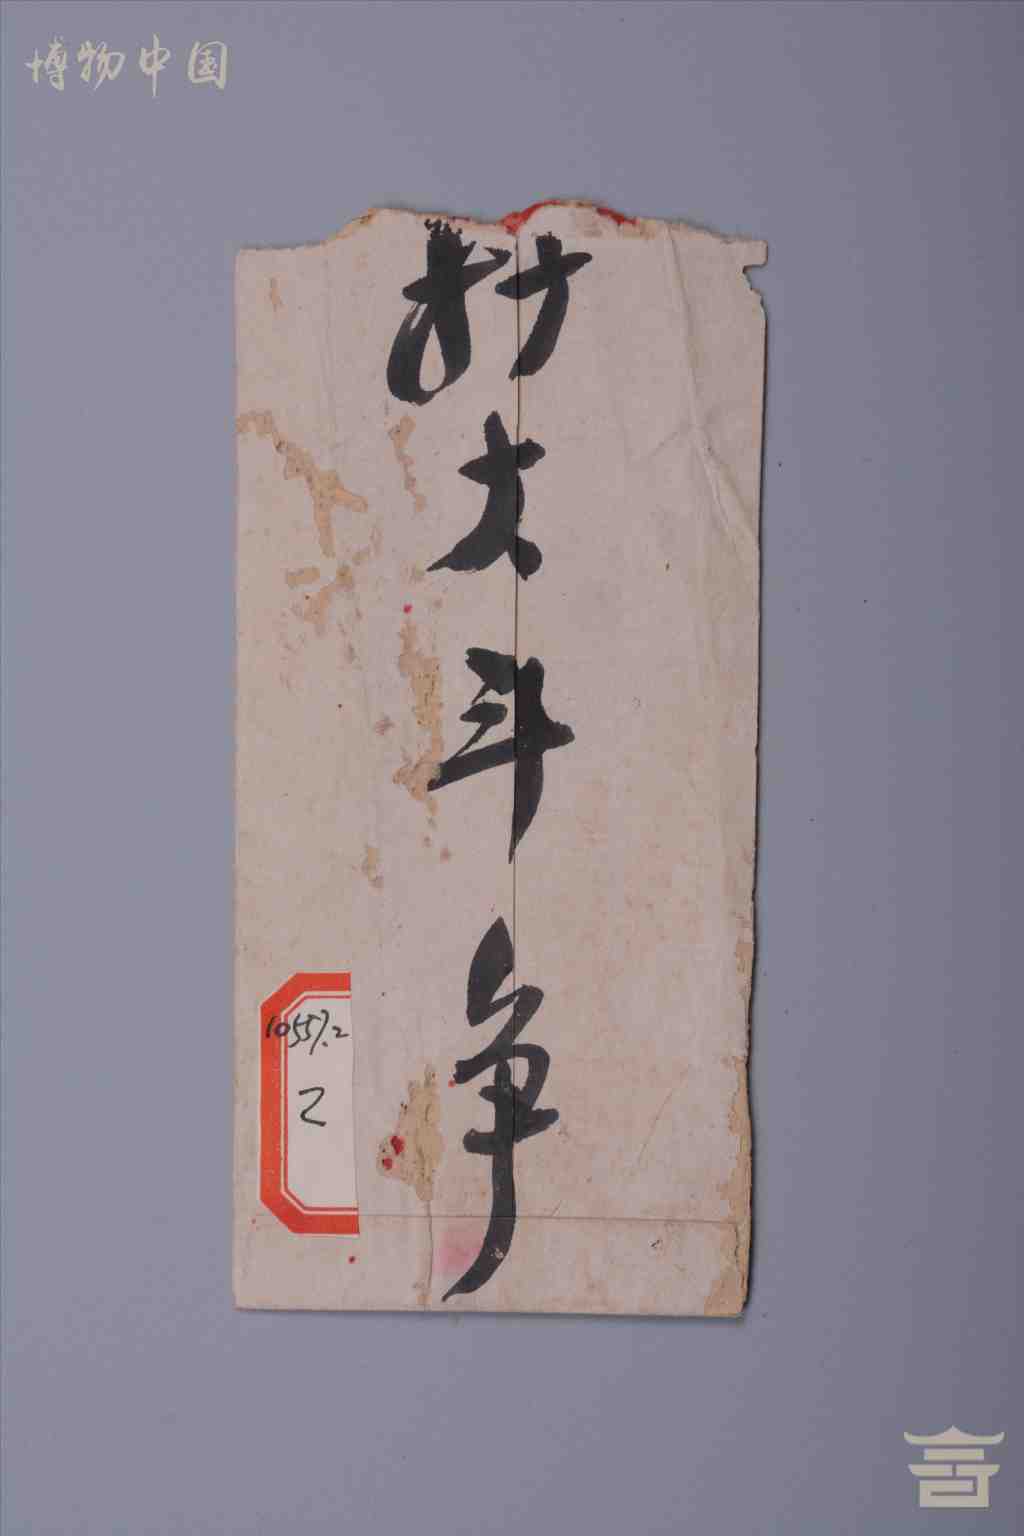 博物中国
大斗争
10557.2